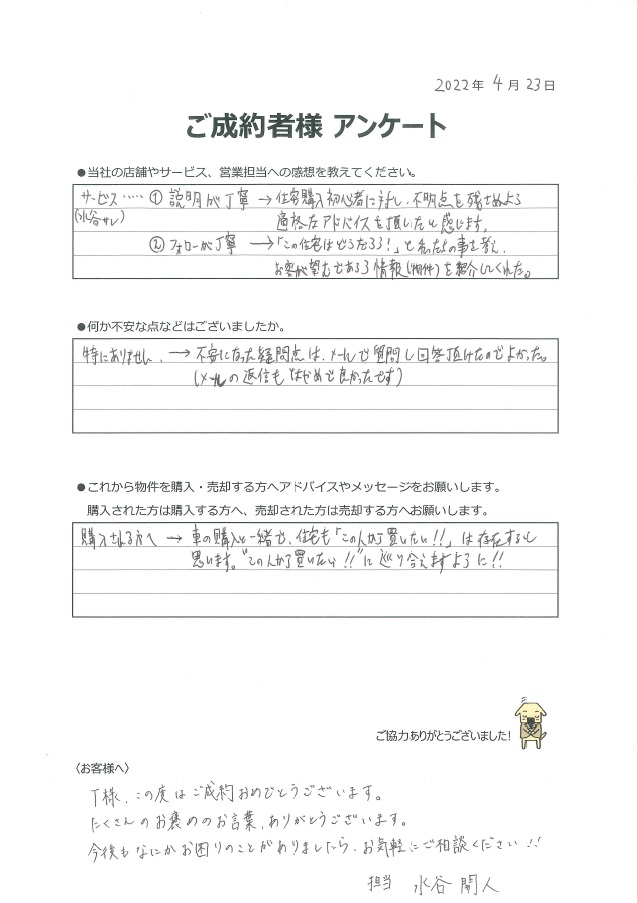 2022年 4月 23日
ご成約者様 アンケート
●当社の店舗やサービス、営業担当への感想を教えてください。
サービス‥‥‥ ① 説明が丁寧 → 住宅購入初心者に対し、不明点を残さぬよう
(水谷サン) 適格なアドバイスを頂いたと感じます。
② フォローが丁寧 → 「この住宅はどうだろう!」と私たちの事を考え、
お客が望むであろう情報(物件)を紹介してくれた。
●何か不安な点などはございましたか。
特にありません。 → 不安になった疑問点は、メールで質問し回答頂けたのでよかった。
(メールの返信もはやめで良かったです)
●これから物件を購入・売却する方へアドバイスやメッセージをお願いします。
購入された方は購入する方へ、売却された方は売却する方へお願いします。
購入される方へ → 車の購入と一緒で、住宅も「この人から買いたい!!」は存在すると
思います。"この人から買いたい!!"に巡り合えますように!!
ご協力ありがとうございました!
〈お客様へ〉
T様、この度はご成約おめでとうございます。
たくさんのお褒めのお言葉、ありがとうございます。
今後もなにかお困りのことがありましたら、お気軽にご相談ください!!
担当 水谷 開人